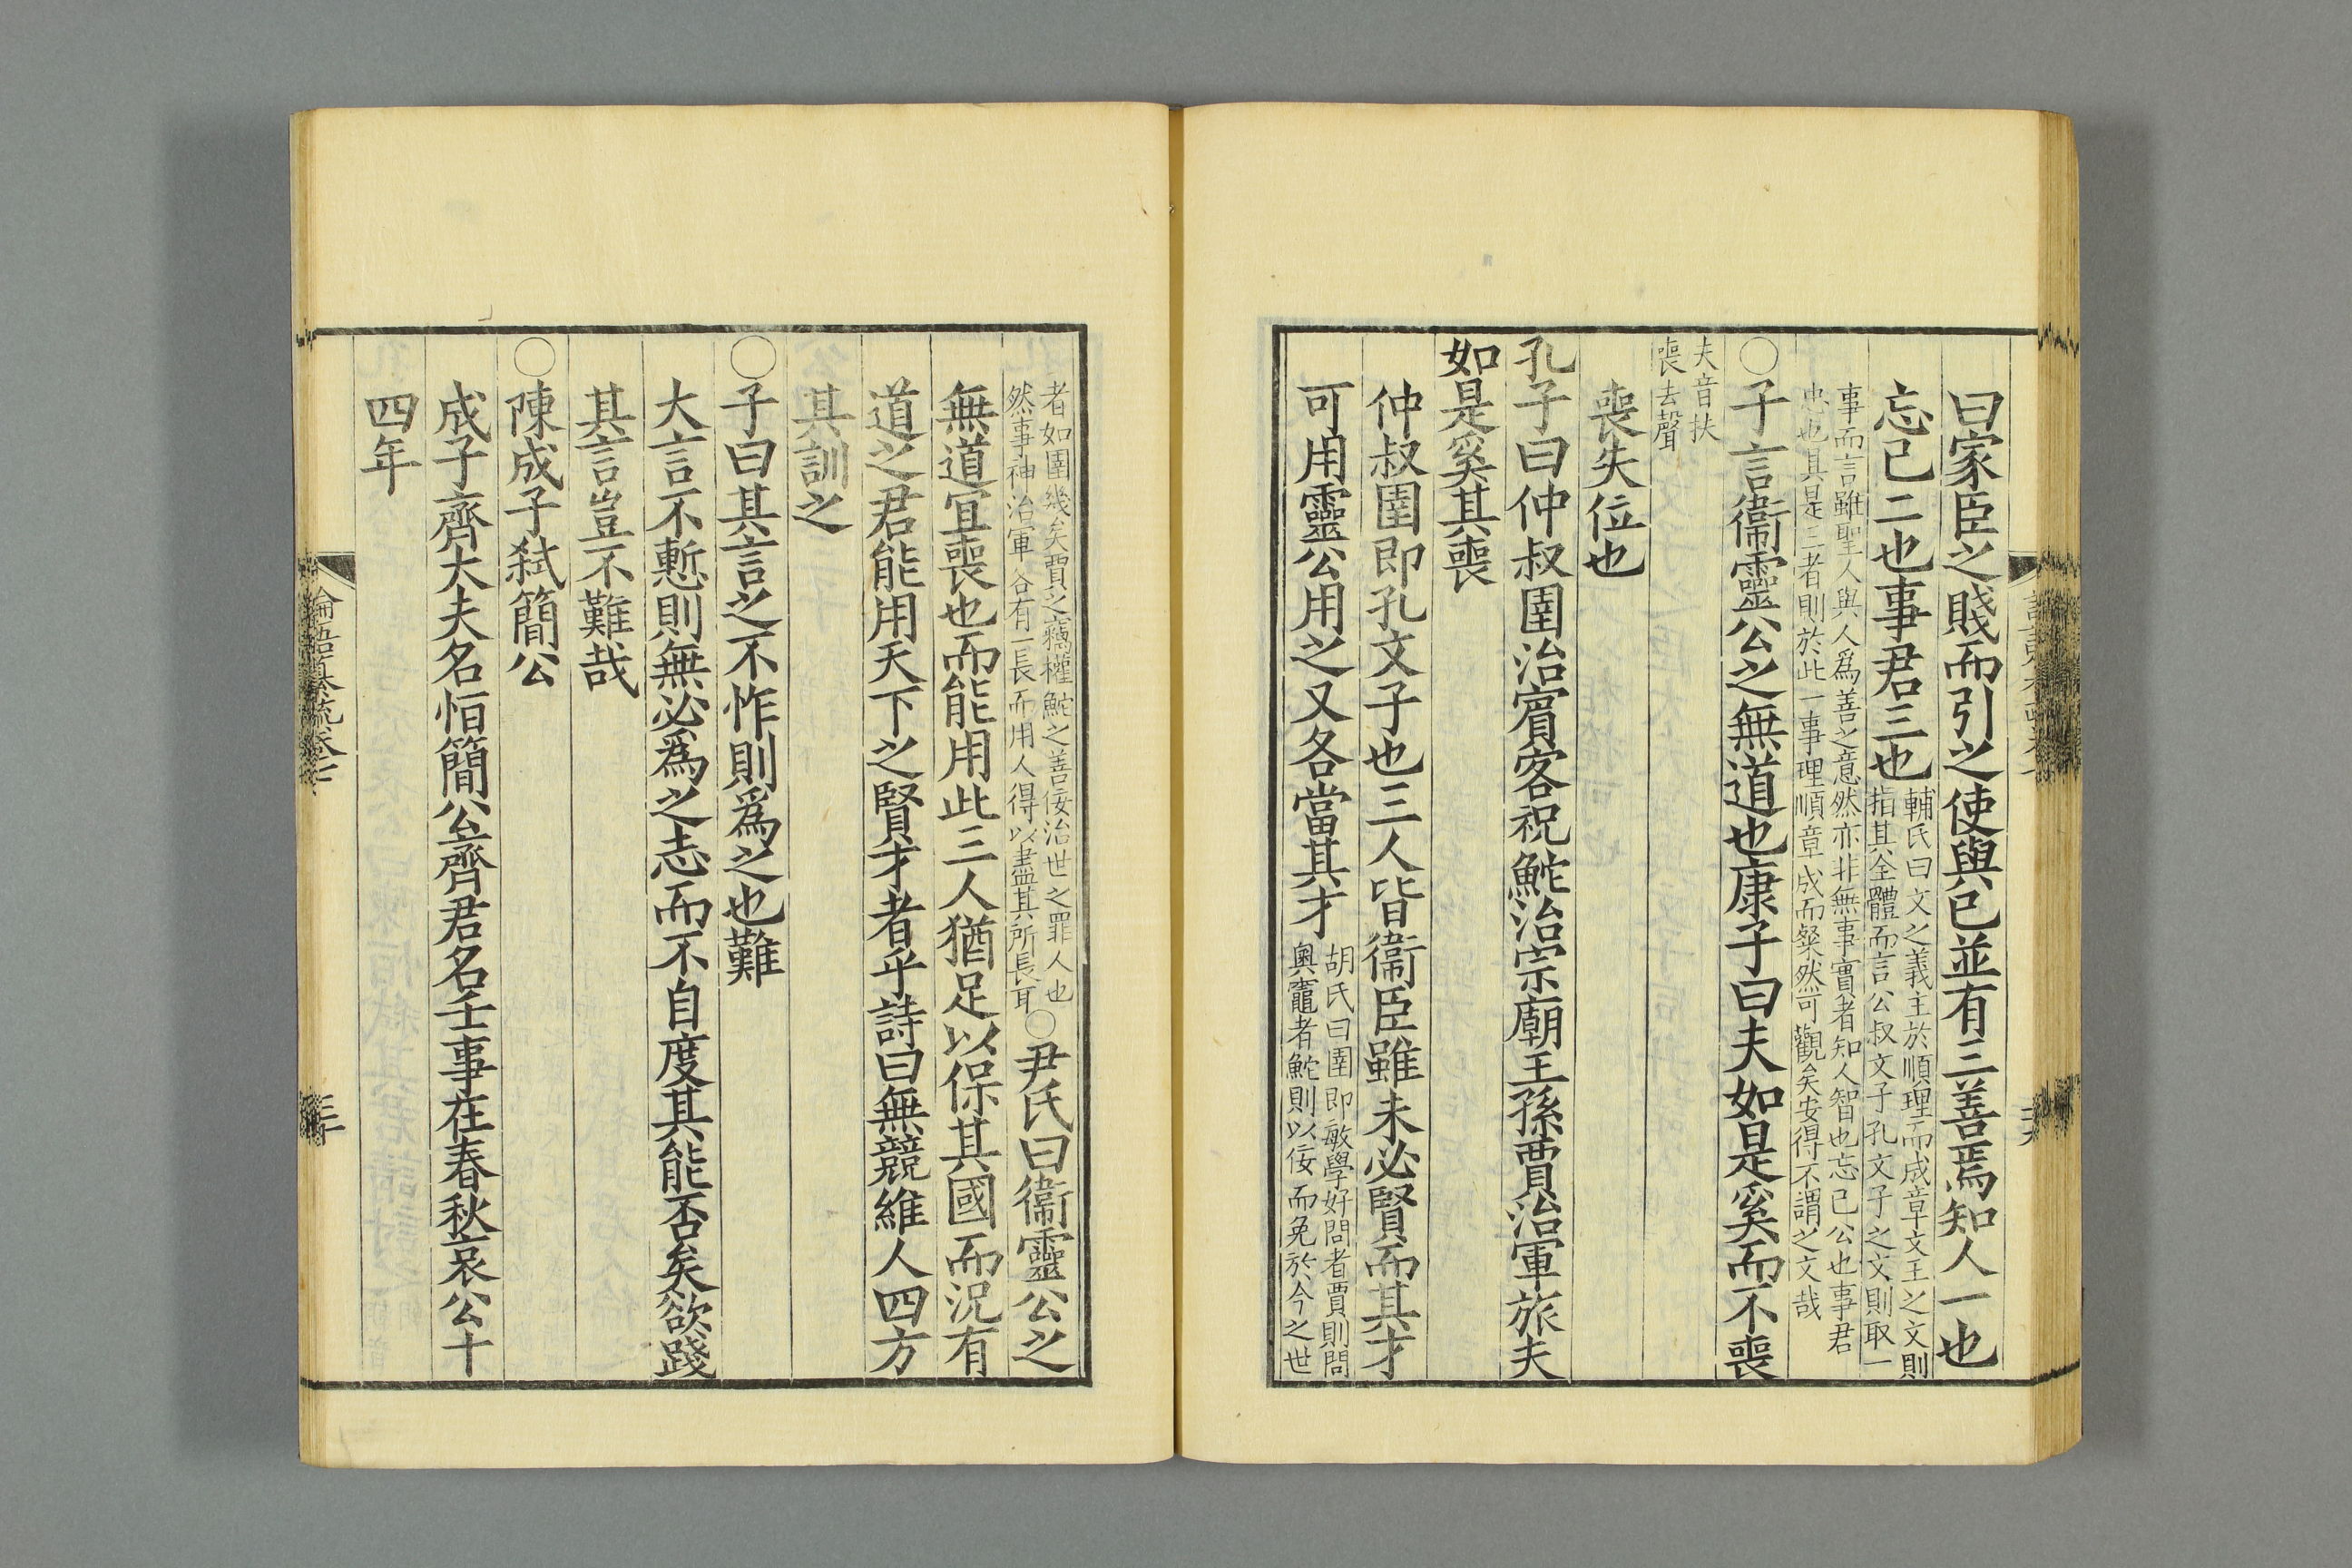 曰家臣之賤而引之使與己並有三善焉知人一也
忘己二也事君三也
輔氏曰文之義主於順理而成章文王之文則
指其全體而言公叔文子孔文子之文則取一
事而言雖聖人與人為善之意然亦非無事實者知人智也忘己公也事君
忠也具是三者則於此一事理順章成而粲然可觀矣安得不謂之文哉
○子言衞靈公之無道也康子曰夫如是奚而不喪
夫音扶
喪去聲
喪失位也
孔子曰仲叔圉治賔客祝鮀治宗廟王孫賈治軍旅夫
如是奚其喪
仲叔圉即孔文子也三人皆衞臣雖未必賢而其才
可用靈公用之又各當其才
胡氏曰圉即敏學好問者賈則問
奧竈者鮀則以佞而免於今之世
者如圉幾矣賈之竊權鮀之善佞治世之罪人也
然事神治軍各有一長而用人得以盡其所長耳
○尹氏曰衞靈公之
無道宜喪也而能用此三人猶足以保其國而況有
道之君能用天下之賢才者乎詩曰無競維人四方
其訓之
○子曰其言之不怍則爲之也難
大言不慙則無必爲之志而不自度其能否矣欲踐
其言豈不難哉
○陳成子弑簡公
成子齊大夫名恒簡公齊君名壬事在春秋哀公十
四年
論語纂疏卷七